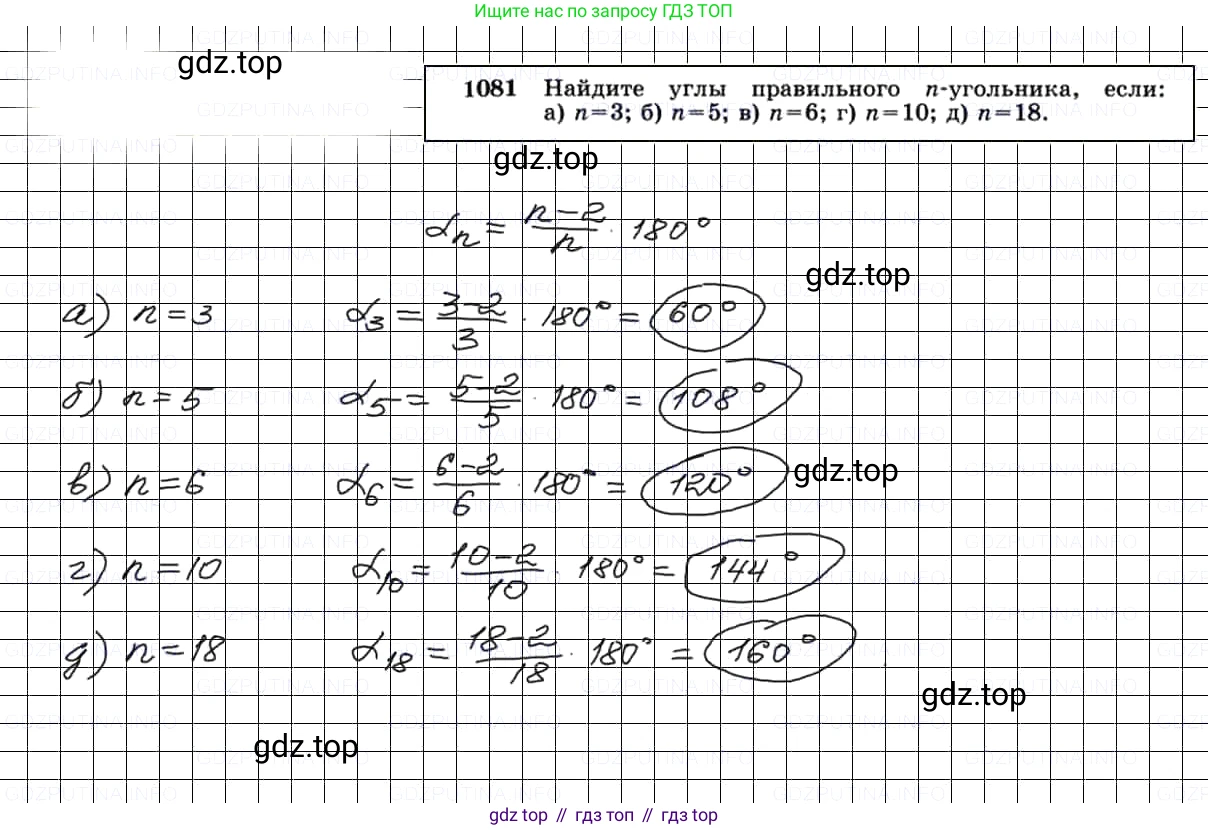 Ищите нас по запросу ГДЗ ТОП
gdz.top
1081 Найдите углы правильного n-угольника, если:
а) n=3; б) n=5; в) n=6; г) n=10; д) n=18.
gdz.top
αn = (n-2)/n · 180°
gdz.top
а) n=3 α3 = (3-2)/3 · 180° = 60°
б) n=5 α5 = (5-2)/5 · 180° = 108°
в) n=6 α6 = (6-2)/6 · 180° = 120°
gdz.top
г) n=10 α10 = (10-2)/10 · 180° = 144°
д) n=18 α18 = (18-2)/18 · 180° = 160°
gdz.top
gdz.top
gdz top // гдз топ // гдз top
GDZPUTINA.INFO